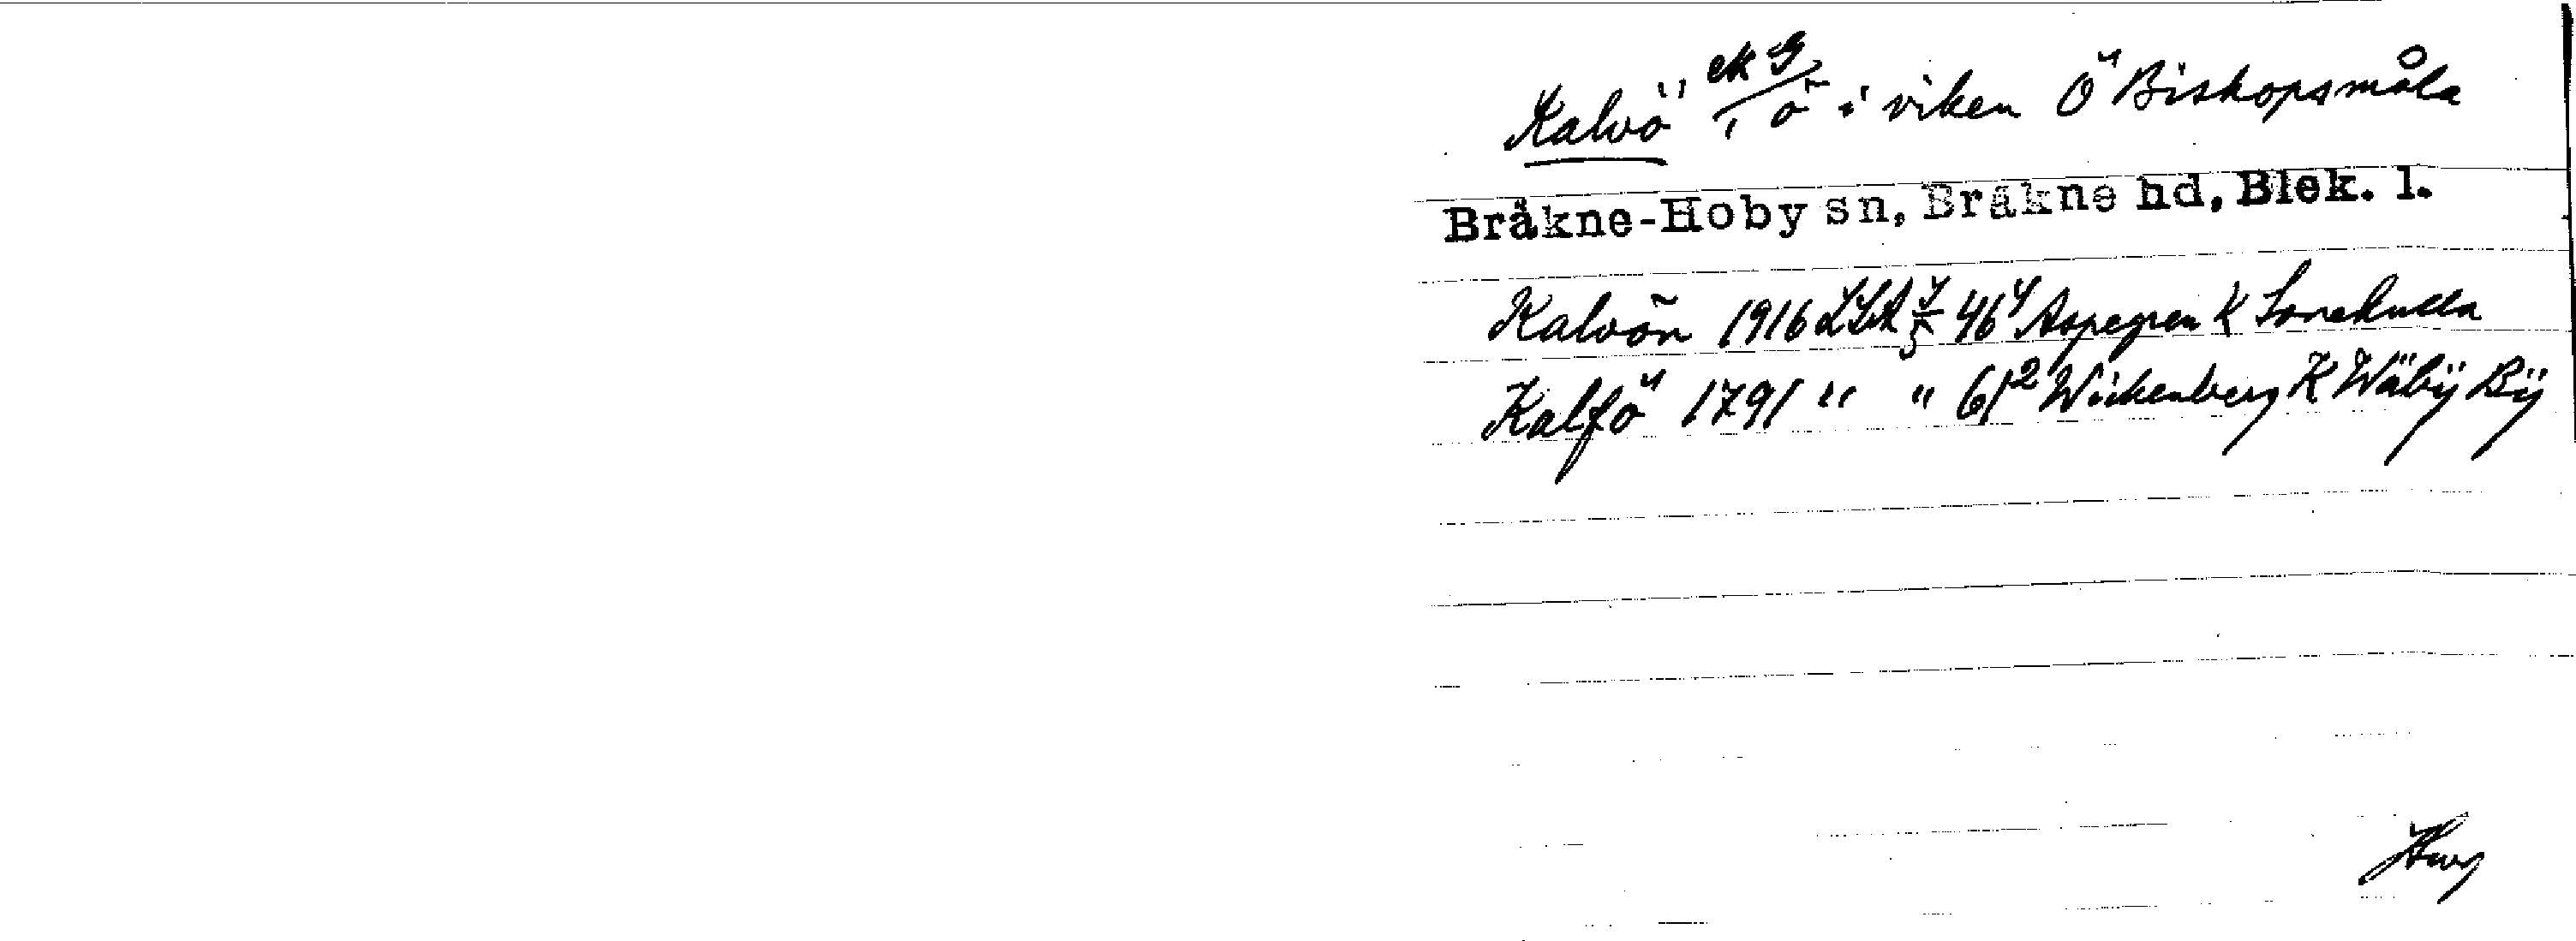 Kalvö ek G, ö i viken Ö Biskopsmåla
Bräkne-Hoby sn, Bräkne hd, Blek. l.
Kalvön 1916 LSA 46⁴ Aspegren K Sonekulla
Kalfö 1791 " " 61² Wickenberg K Wäbÿ Bÿ